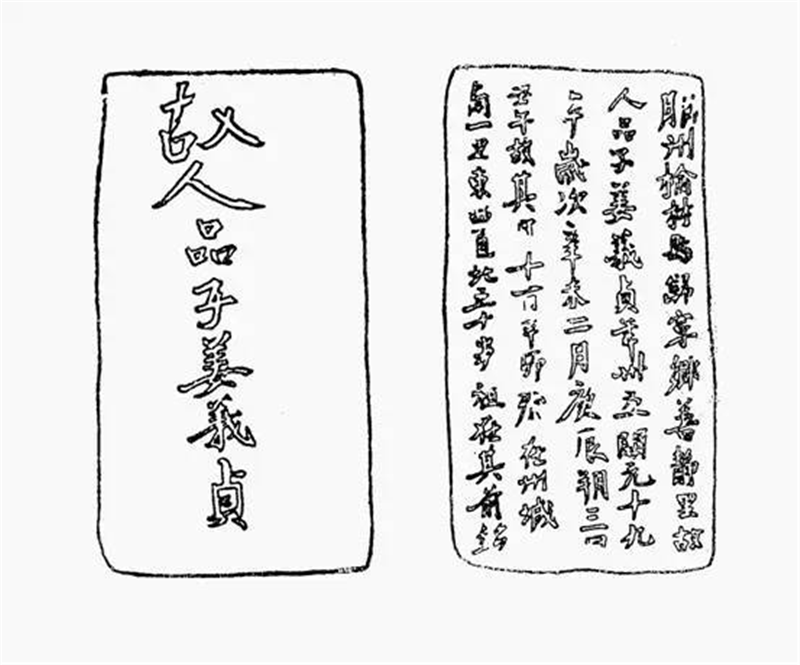 故人品子姜義貞
勝州榆林縣歸寧鄉善静里故
人品子姜義貞年卅五開元十九
年歲次辛未二月庚辰朔三日
壬午故其月十 辛卯 在州城
南一里東西道北五十步祖在其前銘